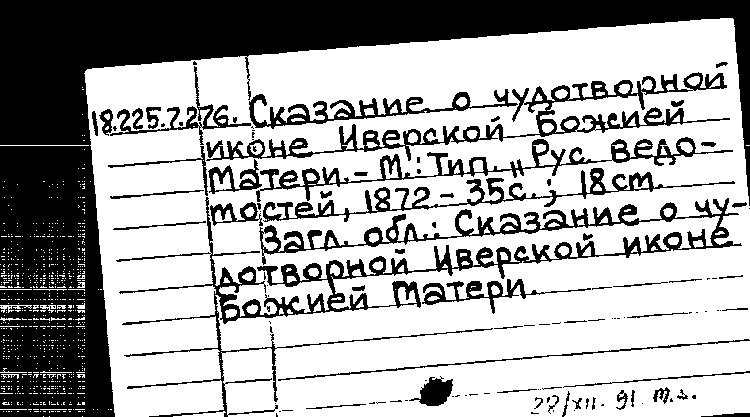 18.225.7.276. Сказание о чудотворной
иконе Иверской Божией
Матери.- М.: Тип. „Рус. ведо-
мостей, 1872.- 35с.; 18cm.
Загл. обл.: Сказание о чу-
дотворной Иверской иконе
Божией Матери.
28/XII. 91. м.з.